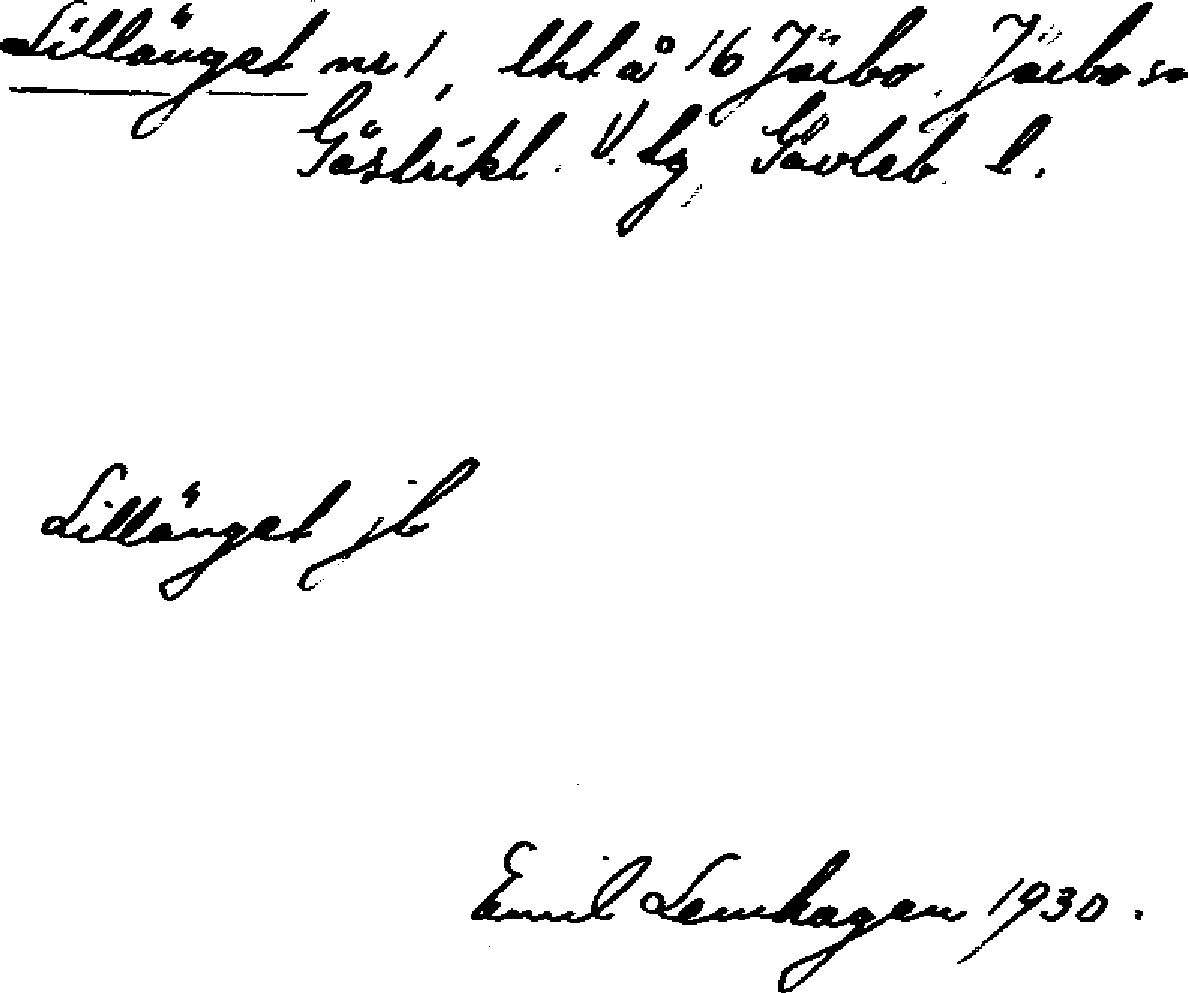 Lillänget nr 1, lht å 16 Järbo, Järbo sn
Gästrikl. V. tg, Gävleb. l.
Lillänget jb
Emil Lemhagen 1930.